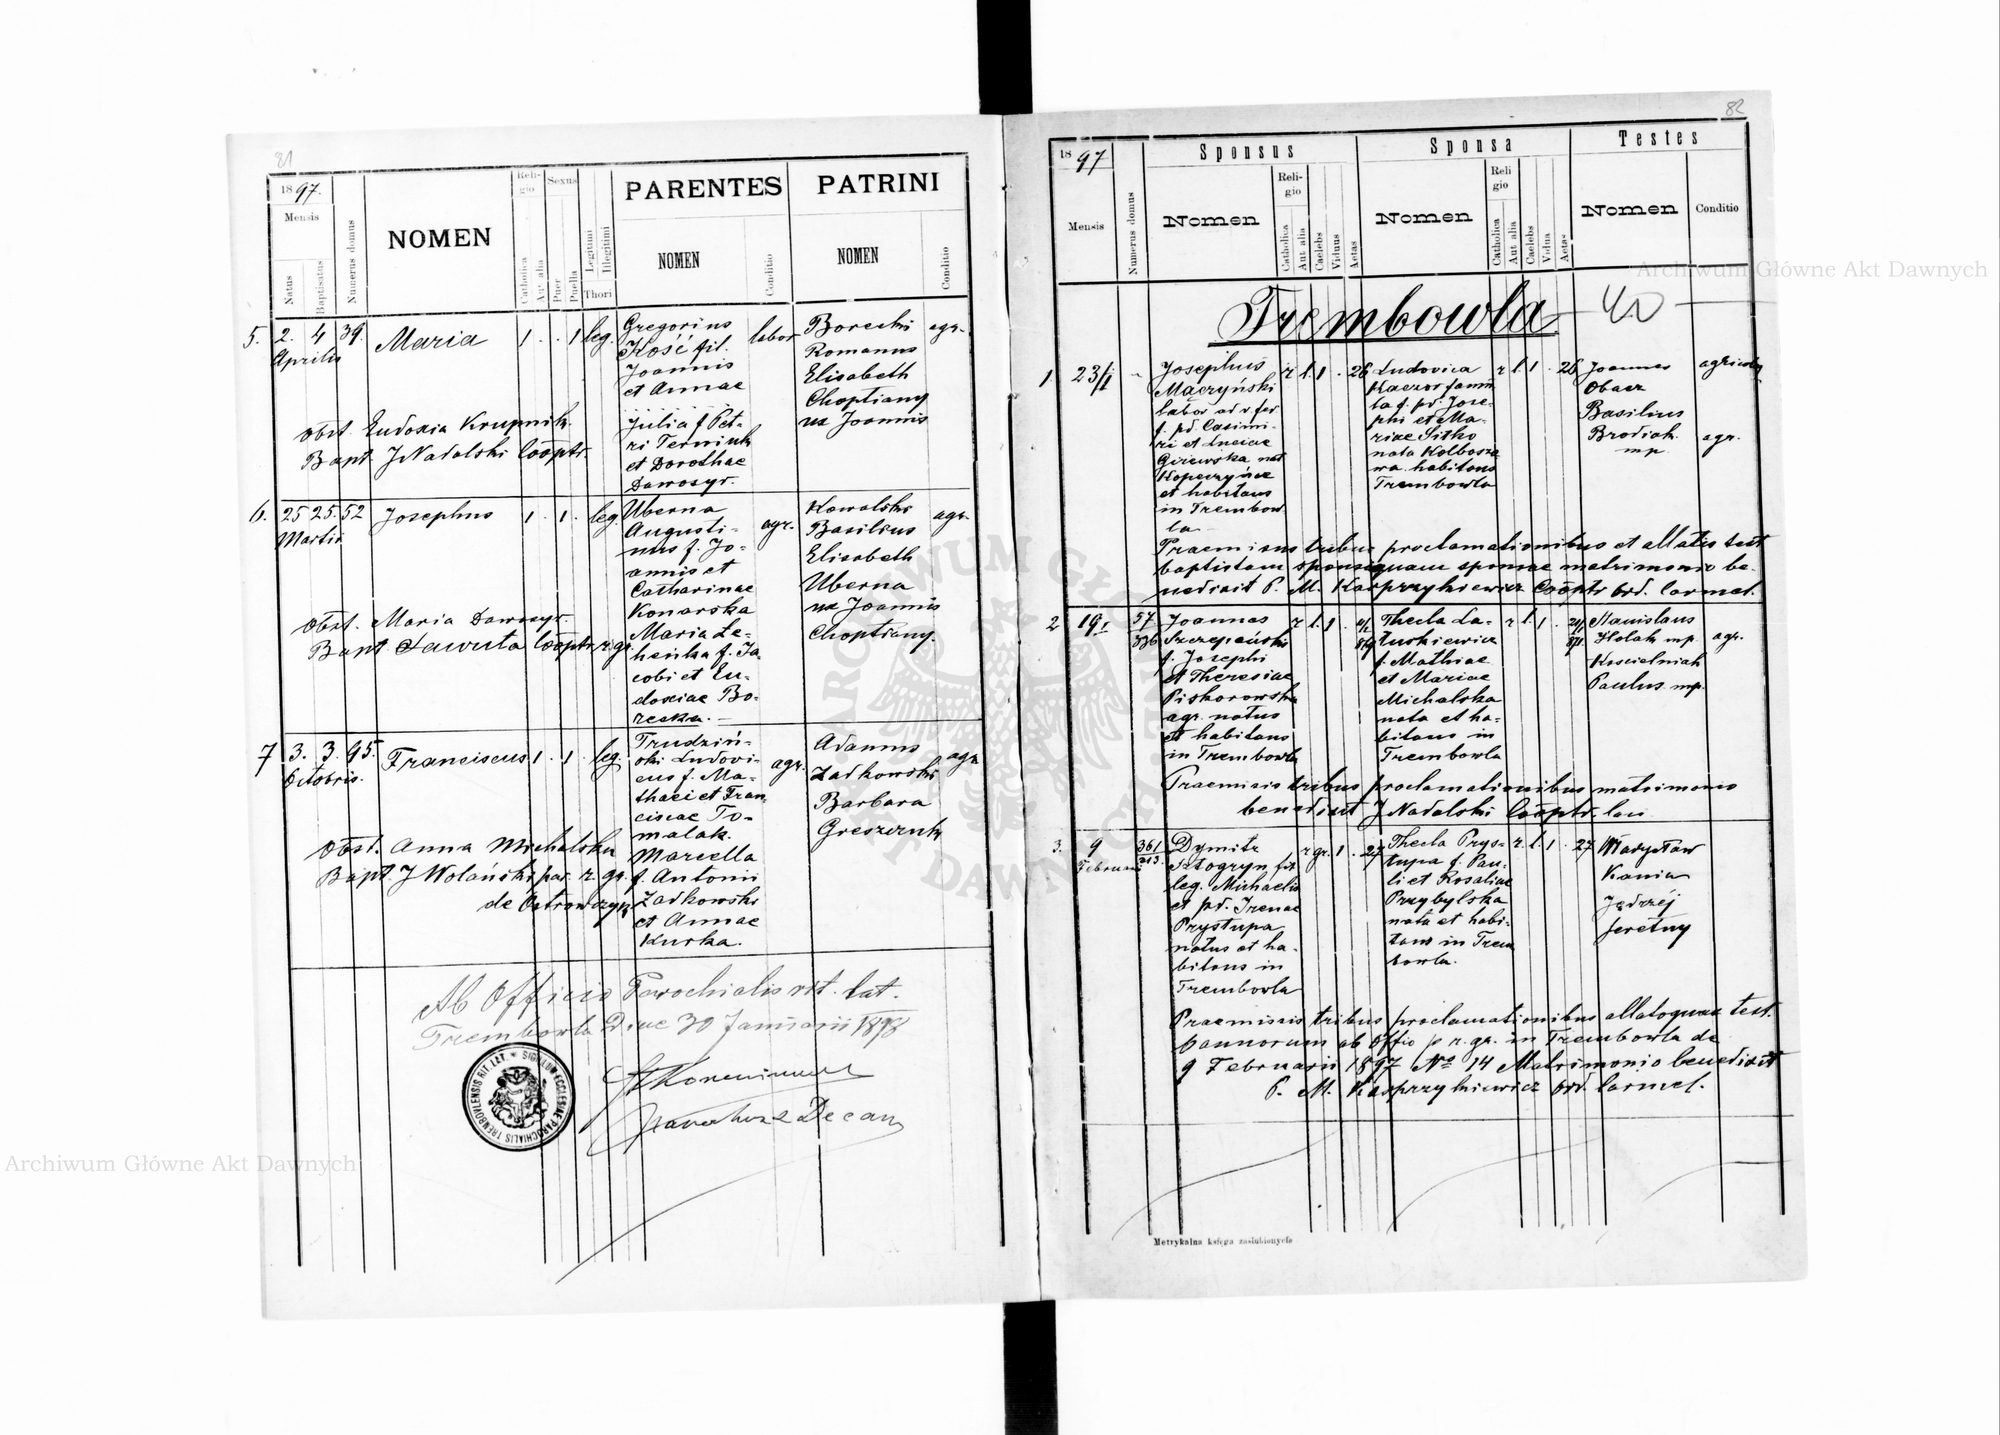 81
1897.
Mensis
Natus
Baptisatus
Numerus domus
NOMEN
Religio
Catholica
Aut alia
Sexus
Puer
Puella
Legitimi
Illegitimi
Thori
PARENTES
NOMEN
Conditio
PATRINI
NOMEN
Conditio
5. 2. 4 39. Maria 1 . . 1 leg.
Aprilis
Gregorius
Kość fil.
Joannis
et Annae
Julia f Pet-
ri Terniuk
et Dorothae
Dawosyr.
labor
Borecki
Romanus
Elisabeth
Choptiany
ux Joannis
agr.
Obst. Eudoxia Krupnik.
Bapt. J Nadolski Cooptr.
6. 25 25. 52 Josephus 1 . 1 . leg.
Martii
Uberna
Augusti-
nus f. Jo-
annis et
Catharinae
Konarska
Maria Le-
heńka f. Ja-
cobi et Eu-
doxiae Bo-
recka.
agr.
Kowalski
Basilius
Elisabeth
Uberna
ux Joannis
Choptiany.
agr.
Obst. Maria Dawosyr.
Bapt. Ławruta Cooptr r. gr.
7 3. 3. 95. Franciscus 1 . 1 . leg.
Octobris.
Trudziń-
ski Ludovi-
cus f. Ma-
thaei et Fran-
ciscae To-
malak.
Marcella
f. Antonii
Zadkowski
et Annae
Kurka.
agr.
Adamus
Zadkowski
Barbara
Greszczuk
agr.
Obst. Anna Michalska
Bapt. J Wolański par. r. gr.
de Ostrowczyk
Ab Officio Parochialis rit. lat.
Trembowla Die 30 Januarii 1898
Parochus Decan
SIGILLUM ECCLESIAE PAROCHIALIS TREMBOWLENSIS RIT. LET.
82
1897
Mensis
Numerus domus
Sponsus
Nomen
Religio
Catholica
Aut alia
Caelebs
Viduus
Aetas
Sponsa
Nomen
Religio
Catholica
Aut alia
Caelebs
Vidua
Aetas
Testes
Nomen
Conditio
Trembowla
40
1. 23/I
Josephus
Maczyński
labor ad v. fer.
f. pd. Casimi-
ri et Luciae
Giżewska nat
Kopeczyńce
et habitans
in Trembow
la
r. l. 1 . 26
Ludovica
Kaczor famu
la f. pd. Jose-
phi et Ma-
riae Sitko
nata Kolbusz
wa habitans
Trembowla
r. l. 1 . 26
Joannes
Obacz
Basilius
Brodiak.
mp.
agricola
agr.
Praemissis tribus proclamationibus et allatis test
baptistam sponsiquam sponsae matrimonio be-
nedixit P. M. Kasprzykiewicz Cooptr Ord. Carmel.
2 19/I 57 336
Joannes
Szczepański
f. Josephi
et Theresiae
Piskorowska
agr. natus
et habitans
in Trembowla
r. l. 1
Thecla La-
tuskiewicz
f. Mathiae
et Mariae
Michalska
nata et ha-
bitans in
Trembowla
r. l. 1 .
Stanislaus
Holak mp.
Koscielniak
Paulus mp.
agr.
Praemissis tribus proclamationibus matrimonio
benedixit J Nadolski Cooptr. loci
3. 9 Februarii 361 213.
Dymitr
Hogryn fil.
leg. Michaelis
et pd. Irenae
Prystupa
natus et ha-
bitans in
Trembowla
r gr. 1 . 27
Thecla Prys-
tupa f. Pau-
li et Rosaliae
Przybylska
nata et habi-
tans in Trem
bowla.
r. l. 1 . 27
Władysław
Kania
Jędrzej
Jeretny
Praemissis tribus proclamationibus allatoquae test.
bannorum ab Offic p r. gr. in Trembowla de
9 Februarii 1897 No 14 Matrimonio benedixit
P. M. Kasprzykiewicz Ord. Carmel.
Metrykalna księga zaślubionych
Archiwum Główne Akt Dawnych
Archiwum Główne Akt Dawnych
ARCHIWUM GŁÓWNE AKT DAWNYCH